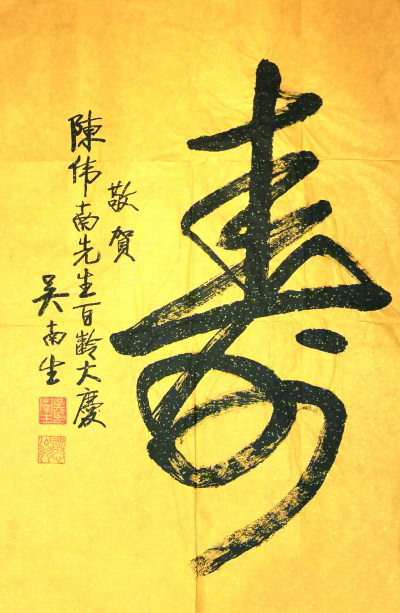 寿
敬賀
陳伟南先生百齡大慶
吴南生